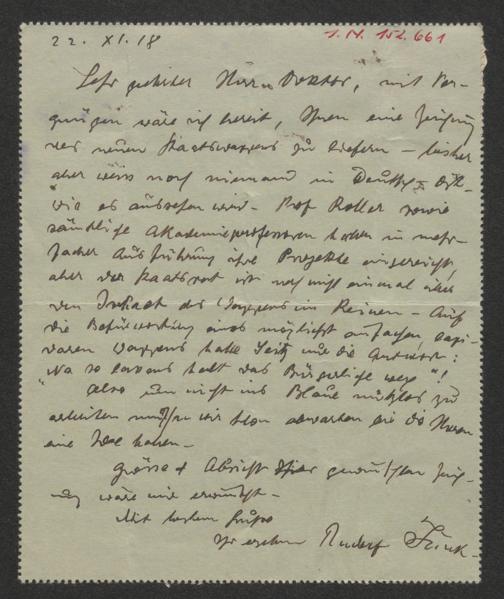 22. XI. 18
J.N. 152.661
Sehr geehrter Herr Doktor, mit Ver-
gnügen wäre ich bereit, Ihnen eine Zeichnung
des neuen Staatswappens zu liefern – bisher
aber weiss noch niemand in Deutsch-Öst-
wie es aussehen wird. Prof Roller sowie
sämtliche Akademieprofessoren haben in mehr-
facher Ausführung ihre Projekte eingereicht,
aber der Staatsrat ist noch nicht einmal über
den Inhalt des Wappens im Reinen – Auf
die Befürwortung eines möglichst einfachen, lapi-
daren Wappens hatte Seitz nur die Antwort:
"Na so lassens halt das Bürgerliche weg"!
Also um nicht ins Blaue nutzlos zu
arbeiten müssen wir schon abwarten bis die Herren
eine Idee haben –
Grösse & Absicht der gewünschten Zeich-
nung wäre mir erwünscht –
Mit besten Grüßen
Ihr ergebener Rudolf Junk –